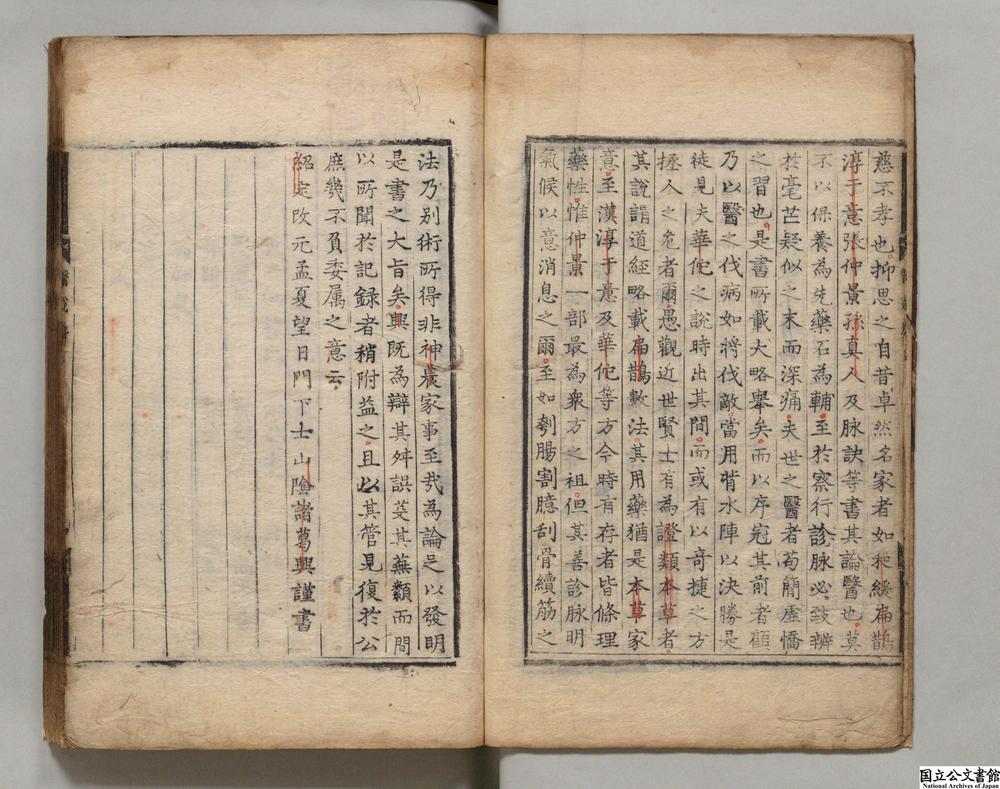 慈不孝也抑思之自昔卓然名家者如和緩扁鵲
淳于意張仲景孫真人及脉訣等書其論醫也莫
不以保養為先藥石為輔至於察行診脉必致辨
於毫芒疑似之末而深痛夫世之醫者苟簡虛憍
之習也是書所載大略舉矣而以序冠其前者顧
乃以醫之伐病如將伐敵當用背水陣以決勝是
徒見夫華佗之說時出其間而或有以奇捷之方
拯人之危者爾愚觀近世賢士有為證類本草者
其說謂道經略載扁鵲數法其用藥猶是本草家
意至漢淳于意及華佗等方今時有存者皆條理
藥性惟仲景一部最為衆方之祖但其善診脉明
氣候以意消息之爾至如刳腸割臆刮骨續筋之
法乃別術所得非神農家事至哉為論足以發明
是書之大旨矣興既為辯其舛誤芟其蕪纇而間
以所聞於記録者稍附益之且以其管見復於公
庶幾不負委属之意云
紹定改元孟夏望日門下士山陰諸葛興謹書
国立公文書館
National Archives of Japan